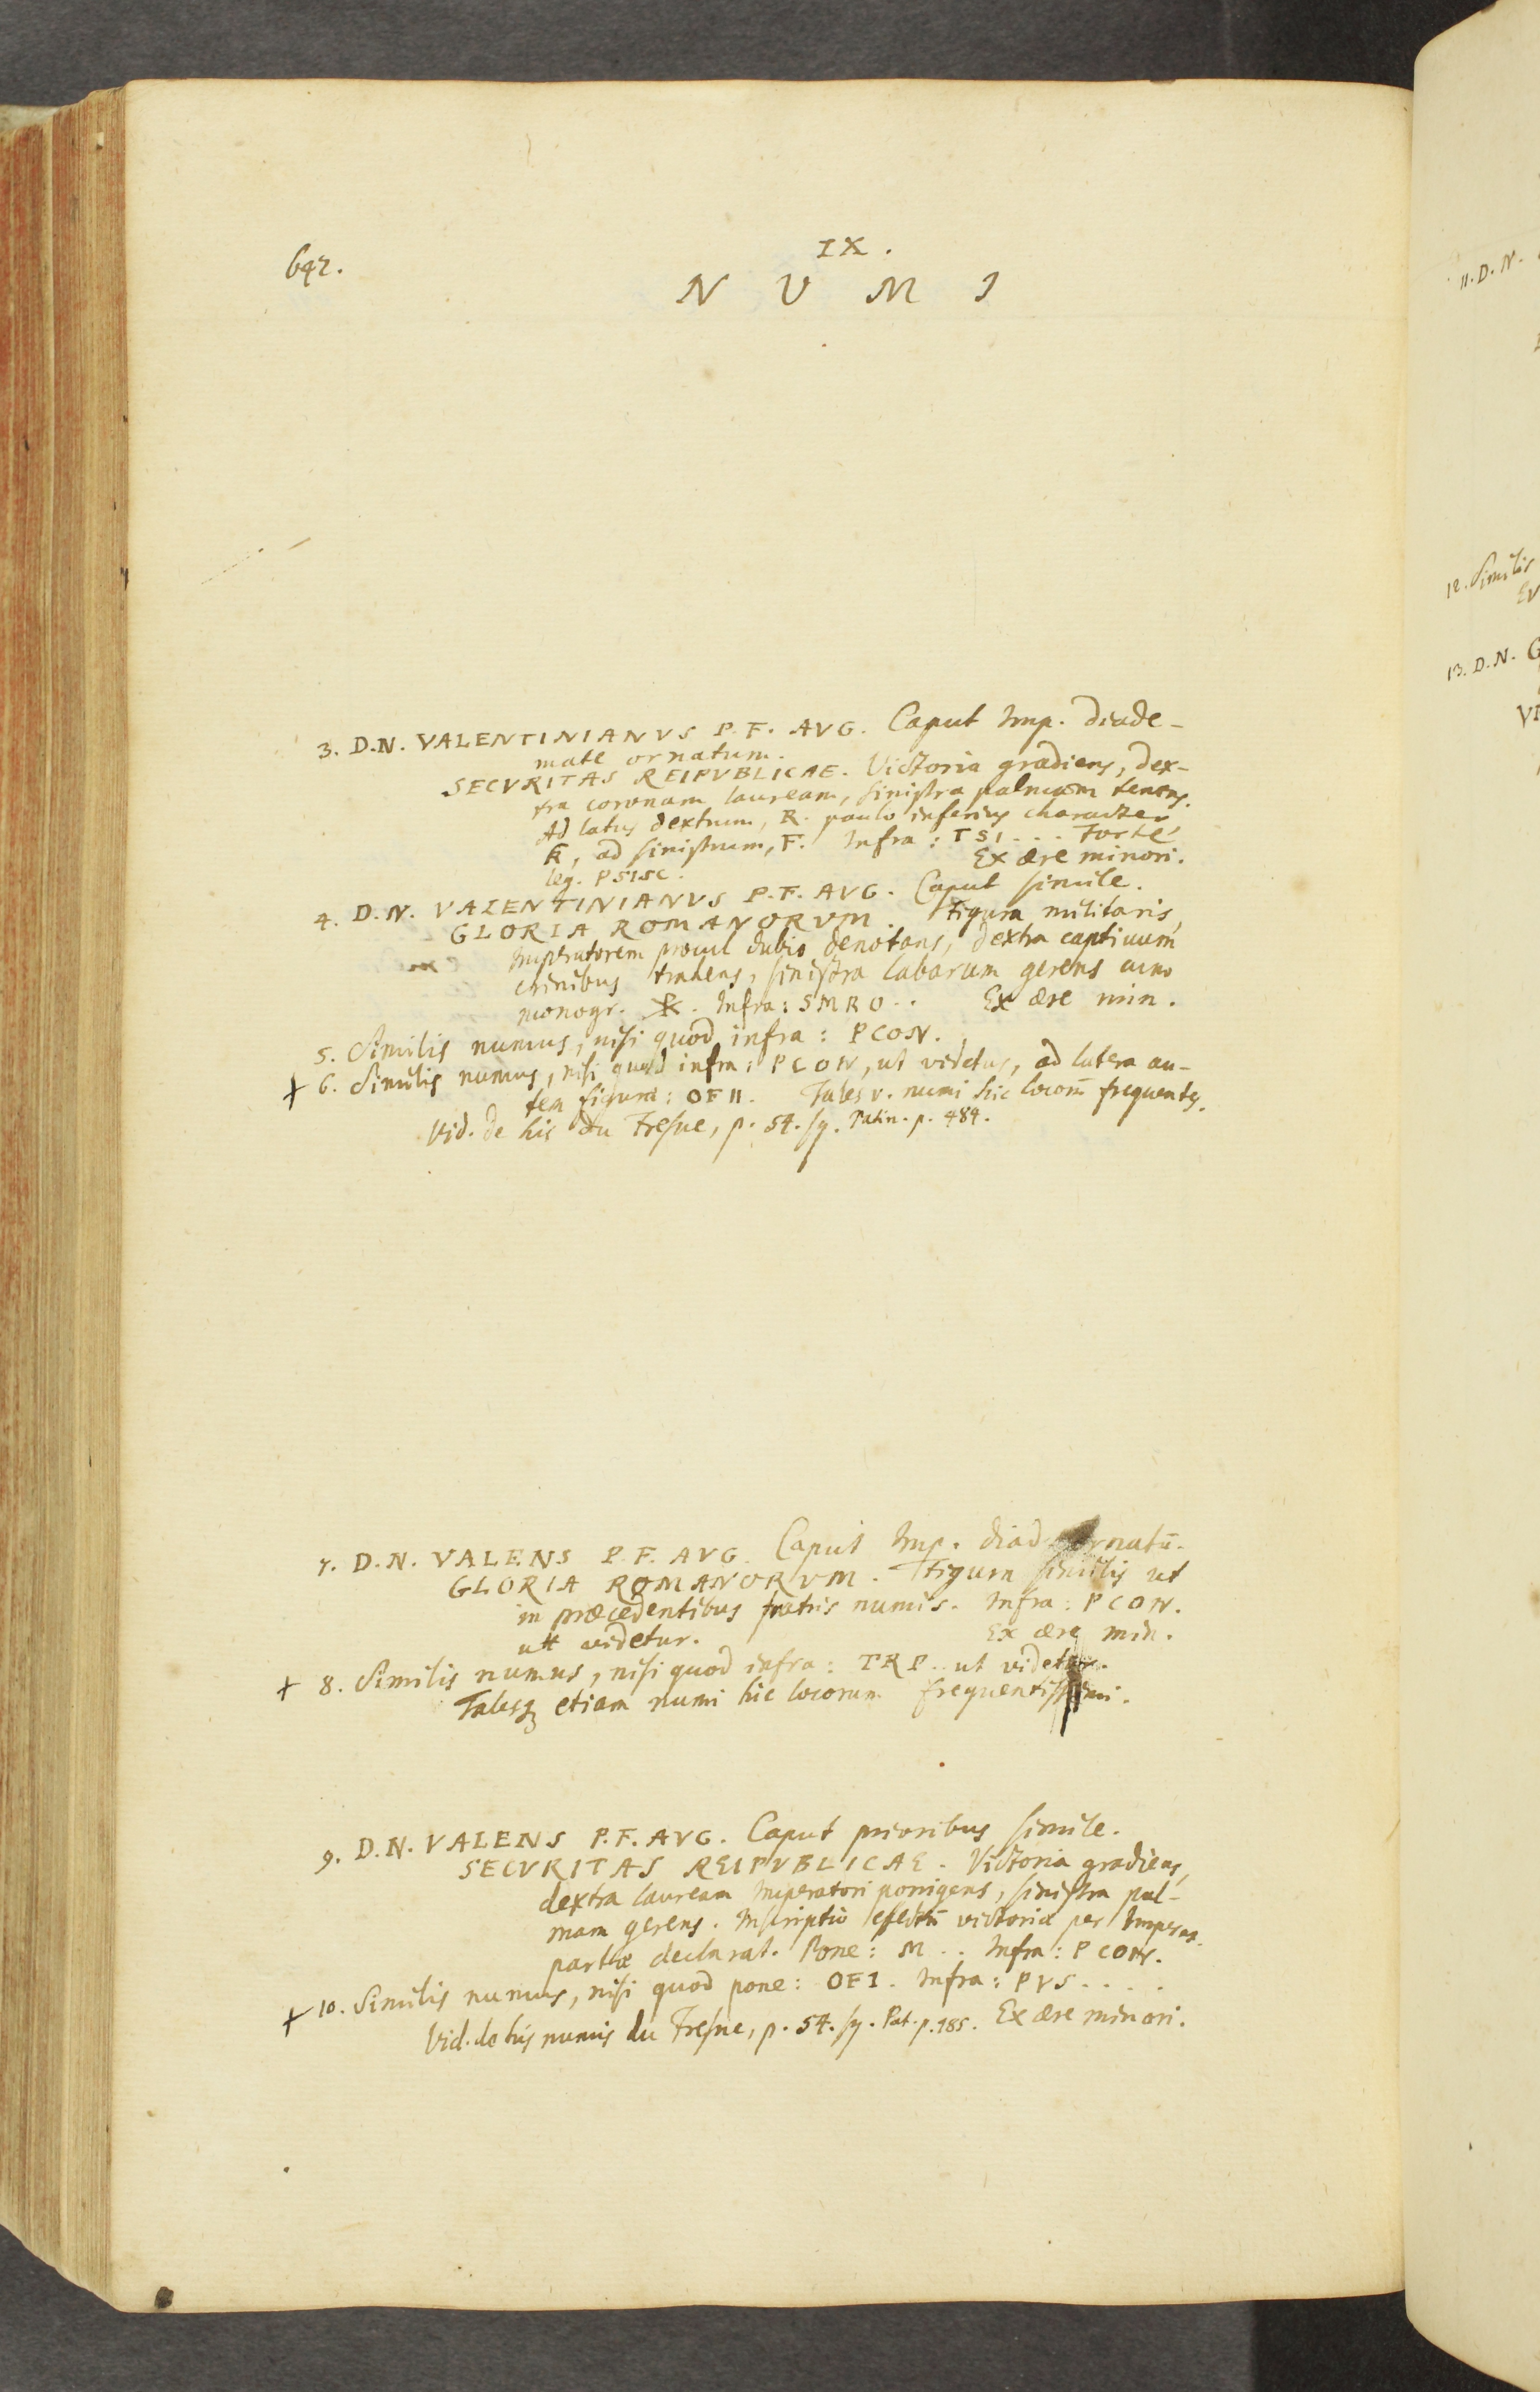 642.
IX.
N U M I
3. D.N. VALENTINIANVS P.F. AVG. Caput Imp. diade-
mate ornatum.
SECVRITAS REIPVBLICAE. Victoria gradiens, dex-
tra coronam lauream, sinistra palmam tenens.
Ad latus dextrum, R. paulo inferius character
R, ad sinistrum, F. Infra: TSI... Forte
leg. PSISC. Ex ære minori.
4. D.N. VALENTINIANVS P.F. AVG. Caput simile.
GLORIA ROMANORVM. Figura militaris,
Imperatorem procul dubio denotans, dextra captiuum
crinibus trahens, sinistra labarum gerens cum
monogr. ☧. Infra: SMRO.. Ex ære min.
5. Similis numus, nisi quod infra: PCON.
+ 6. Similis numus, nisi quod infra: PCON, ut videtur, ad latera au-
tem figuræ: OF II. Tales v. numi hic locorū frequentes.
Vid. de his du Fresne, p. 54. sq. Patin. p. 484.
7. D.N. VALENS P.F. AVG. Caput Imp. diad. ornatū.
GLORIA ROMANORVM. Figura similis ut
in præcedentibus fratris numis. Infra: PCON.
ut videtur. Ex ære min.
+ 8. Similis numus, nisi quod infra: TRP.. ut videtur.
Talesq; etiam numi hic locorum frequentissimi.
9. D.N. VALENS P.F. AVG. Caput prioribus simile.
SECVRITAS REIPVBLICAE. Victoria gradiens,
dextra lauream Imperatori porrigens, sinistra pal-
mam gerens. Inscriptio effectū victoriæ per Imperat.
partæ declarat. Pone: M.. Infra: PCON.
+ 10. Similis numus, nisi quod pone: OF I. Infra: PVS....
Vid. de his numis du Fresne, p. 54. sq. Pat. p. 485. Ex ære minori.
11. D.N.
12. Similis
13. D.N. G
VI